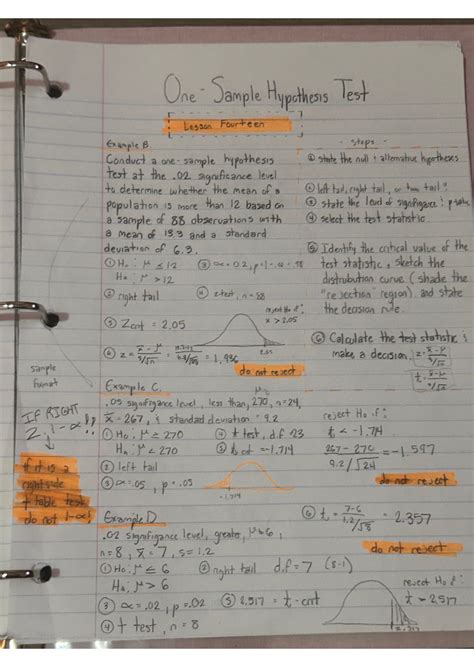 One-Sample Hypothesis Test
Lesson Fourteen
Example B.
Conduct a one-sample hypothesis
test at the .02 significance level
to determine whether the mean of a
population is more than 12 based on
a sample of 88 observations with
a mean of 13.3 and a standard
deviation of 6.3.
① H₀: μ ≤ 12
Hₐ: μ > 12
② right tail
③ α = 0.2, p = 1 - α = .98
④ z test, n = 88
⑤ Zcnt = 2.05
reject H₀ if:
x > 2.05
2.05
⑥ z = x̄ - μ / s/√n = 1.936
do not reject
- steps -
① state the null & alternative hypotheses
② left tail, right tail, or two tail?
③ state the level of significance &
④ select the test statistic
⑤ Identify the critical value of the
test statistic, sketch the
distrubution curve (shade the
"rejection region) and state
the decision rule.
⑥ Calculate the test statistic &
make a decision. z = x̄ - μ / s/√n
t = x̄ - μ / s/√n
sample
format
IF RIGHT
Z, 1-α!!
if it is a
right side
t table test,
do not 1-α!
Example C.
.05 signifigance level, less than, 270, n = 24,
x̄ - 267, & standard deviation = 9.2
① H₀: μ ≥ 270
Hₐ: μ < 270
② left tail
③ α = .05, p = .05
④ t test, d.f 23
⑤ t = -1.714
-1.714
reject H₀ if:
t < -1.714
267 - 270 / 9.2/√24 = -1.597
do not reject
Example D
.02 signifigance level, greater, μ = 6,
n = 8, x̄ = 7, s = 1.2
① H₀: μ ≤ 6
Hₐ: μ > 6
② right tail d.f = 7 (8-1)
③ α = .02, p = .02
④ t test, n = 8
⑤ 2.517 = t - cnt
⑥ t = 7-6 / 1.2/√8 = 2.357
do not reject
reject H₀ if:
t > 2.517